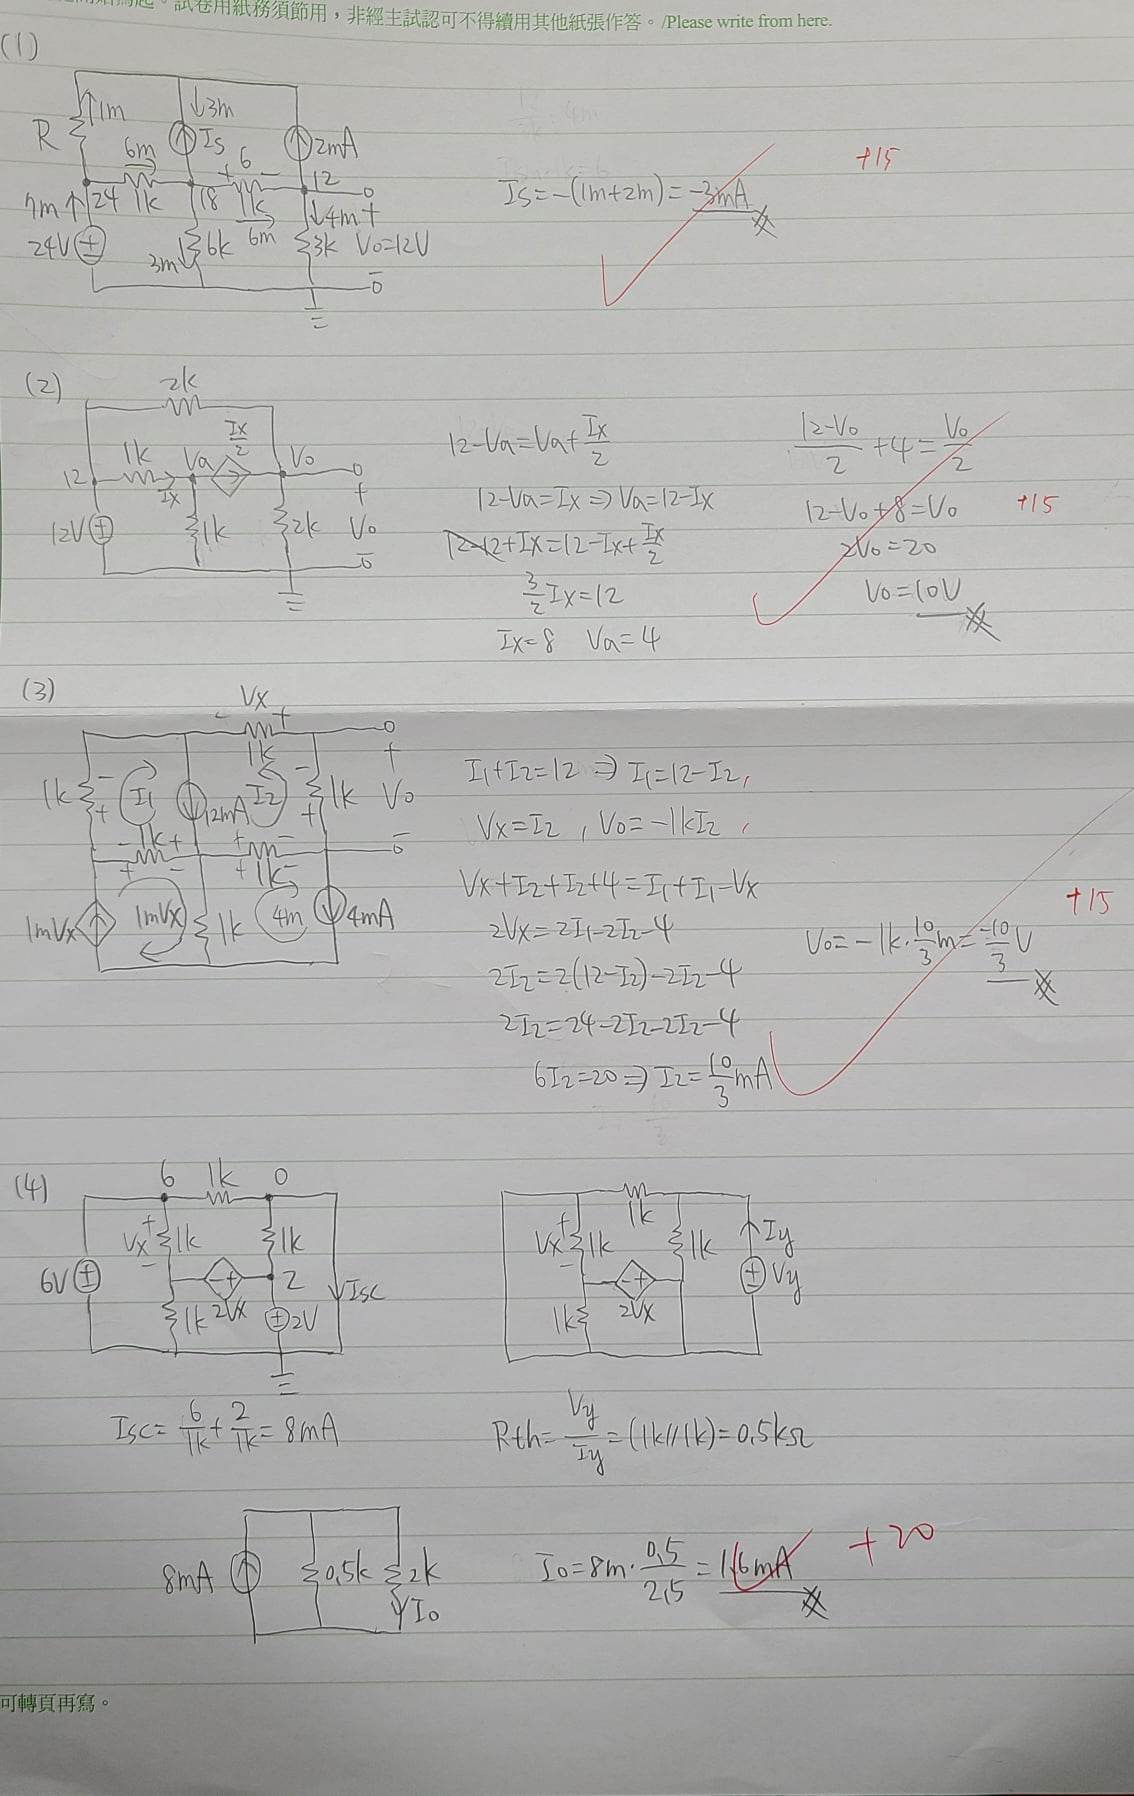 試卷用紙務須節用，非經主試認可不得續用其他紙張作答。/Please write from here.
(1)
↑1m
↓3m
R
6m
Is
6
2mA
+
-
7m↑
24
1k
18
1k
12
↓4m
+
24V
3m
6k
6m
3k
Vo=12V
-
Is=-(1m+2m)=-3mA
+15
(2)
2k
Ix/2
1k
Va
Vo
12
Ix
+
12V
1k
2k
Vo
-
12-Va=Va+Ix/2
12-Va=Ix⇒Va=12-Ix
12-12+Ix=12-Ix+Ix/2
3/2Ix=12
Ix=8 Va=4
(12-Vo)/2+4=Vo/2
12-Vo+8=Vo
2Vo=20
Vo=10V
+15
(3)
- Vx +
1k
1k
I1
12mA
I2
1k
Vo
+
-
1k
1k
1mVx
1mVx
1k
4m
4mA
I1+I2=12⇒I1=12-I2,
Vx=I2, Vo=-1kI2,
Vx+I2+I2+4=I1+I1-Vx
2Vx=2I1-2I2-4
2I2=2(12-I2)-2I2-4
2I2=24-2I2-2I2-4
6I2=20⇒I2=10/3mA
Vo=-1k·10/3m=-10/3V
+15
(4)
6
1k
0
Vx
+
-
1k
1k
6V
2
Isc
1k
2Vx
2V
1k
Vx
+
-
1k
1k
Iy
Vy
1k
2Vx
Isc=6/1k+2/1k=8mA
Rth=Vy/Iy=(1k//1k)=0.5kΩ
8mA
0.5k
2k
Io
Io=8m·0.5/2.5=1.6mA
+20
可轉頁再寫。